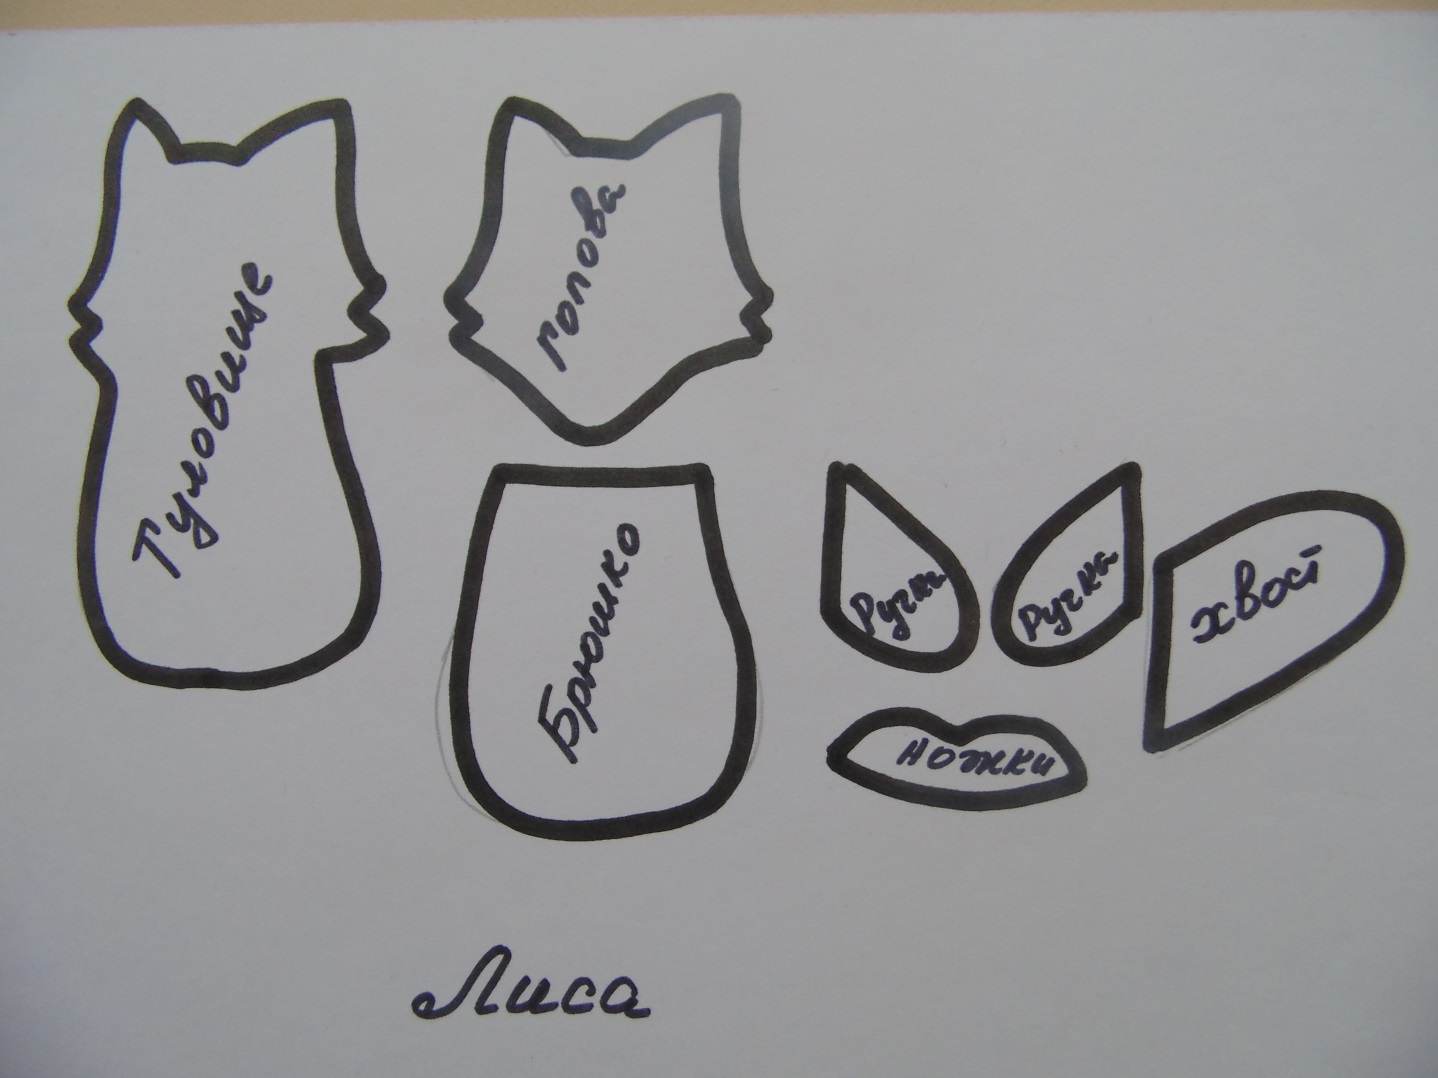 Туловище
голова
Брюшко
Ручка
Ручка
хвост
ножки
Лиса